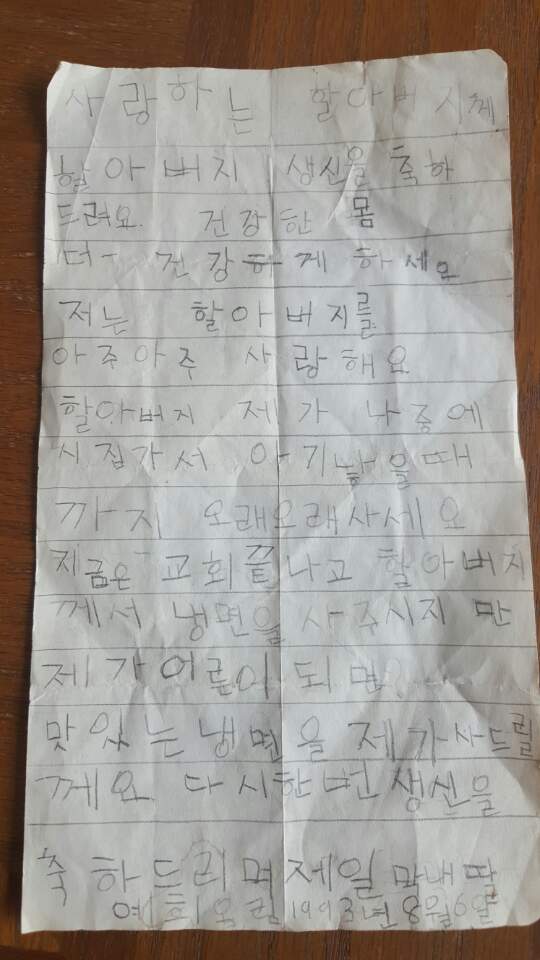 사랑하는 할아버지께
할아버지 생신을 축하
드려요. 건강한 몸
더 건강하게 하세요
저는 할아버지를
아주아주 사랑해요
할아버지 제가 나중에
시집가서 아기낳을때
까지 오래오래사세요
지금은 교회끝나고 할아버지
께서 냉면을 사주시지만
제가어른이 되면
맛있는냉면을 제가사드릴
께요. 다시한번 생신을
축하드리며 제일 막내딸
예희올림 1993년 8월6일